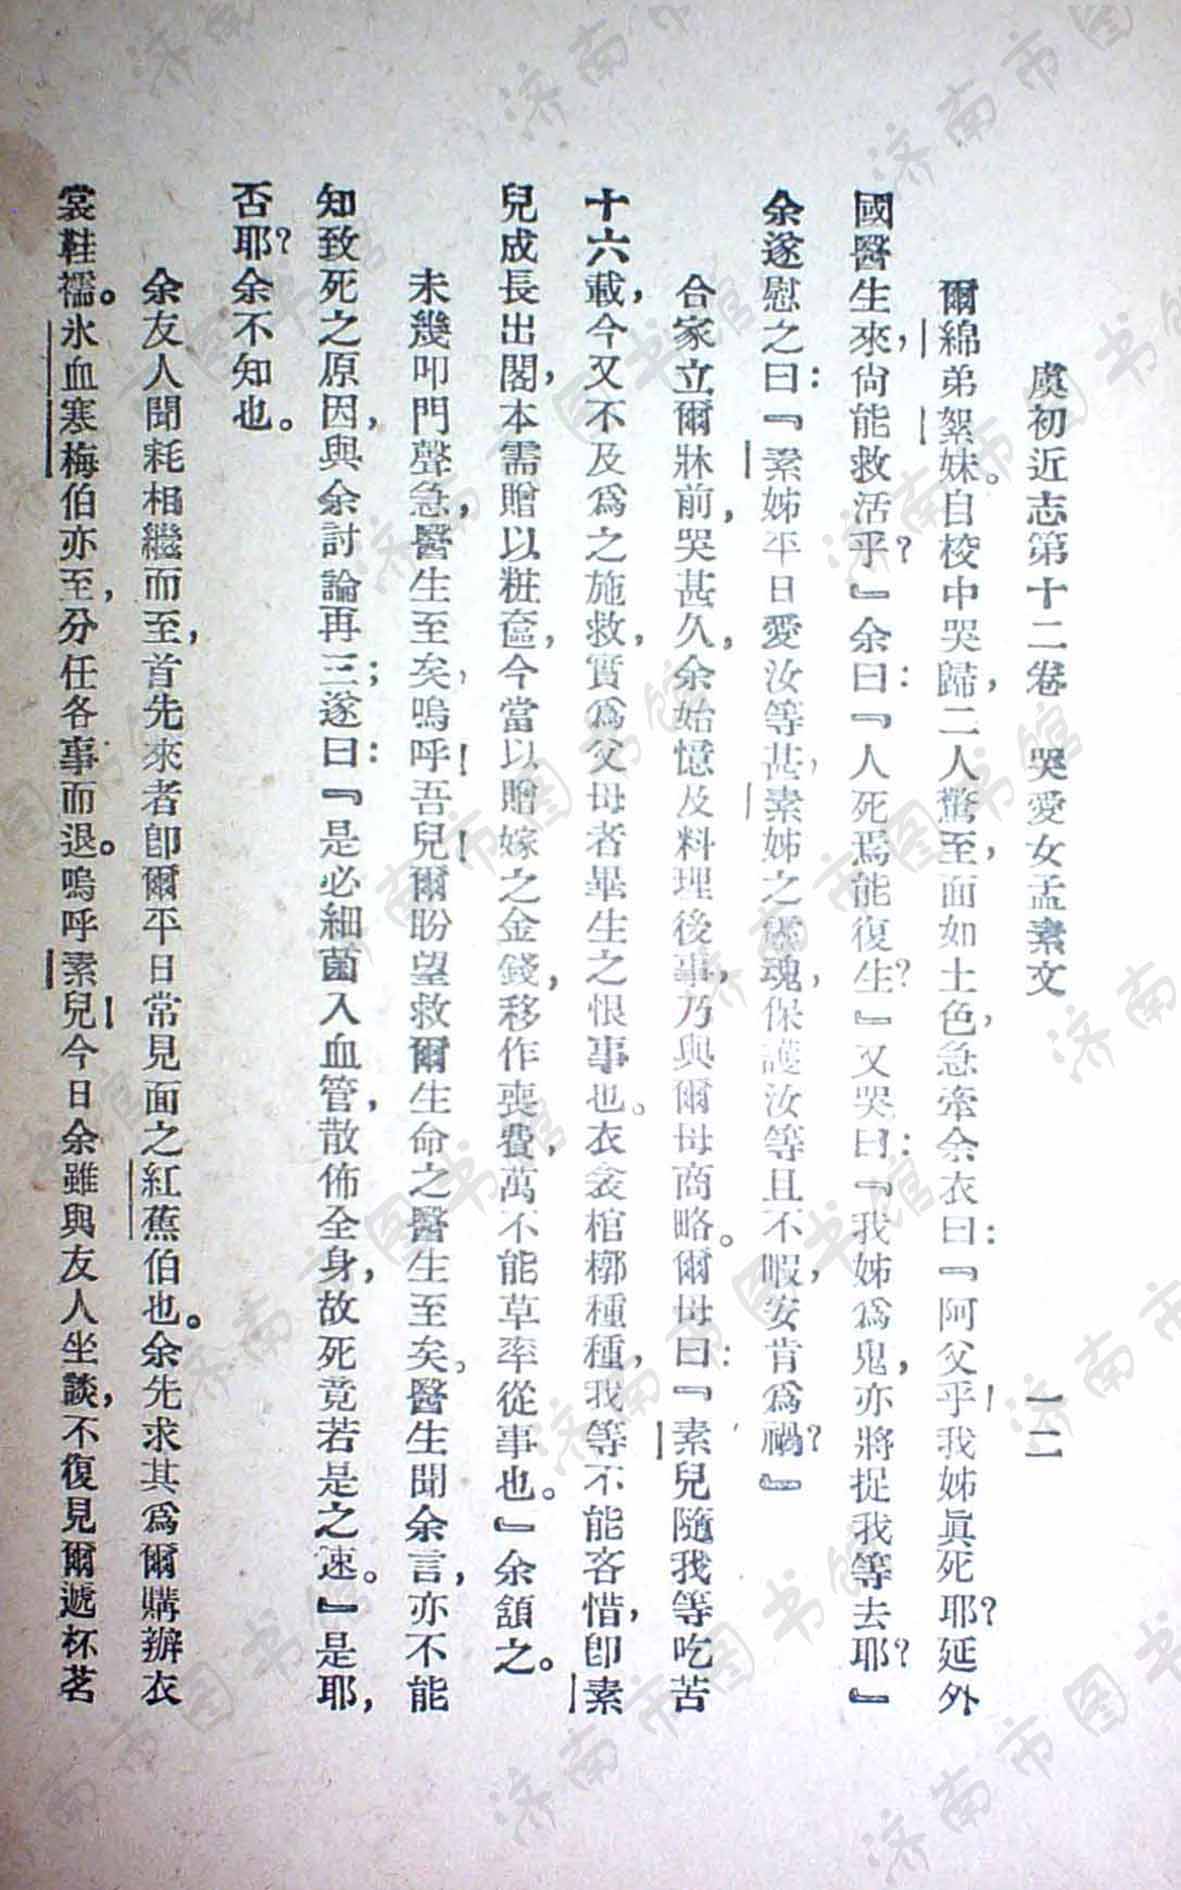 虞初近志第十二卷　哭愛女孟素文　一二
爾綿弟絮妹。自校中哭歸，二人驚至，面如土色，急牽余衣曰：『阿父乎！我姊眞死耶？延外
國醫生來，尙能救活乎？』余曰：『人死焉能復生？』又哭曰：『我姊爲鬼，亦將捉我等去耶？』
余遂慰之曰：『素姊平日愛汝等甚，素姊之靈魂，保護汝等且不暇，安肯爲禍？』
合家立爾牀前，哭甚久，余始憶及料理後事，乃與爾母商略。爾母曰：『素兒隨我等吃苦
十六載，今又不及爲之施救，實爲父母者畢生之恨事也。衣衾棺槨種種，我等不能吝惜，卽素
兒成長出閣，本需贈以粧奩，今當以贈嫁之金錢，移作喪費，萬不能草率從事也。』余頷之。
未幾叩門聲急，醫生至矣，嗚呼！吾兒！爾盼望救爾生命之醫生至矣。醫生聞余言，亦不能
知致死之原因，與余討論再三；遂曰：『是必細菌入血管，散佈全身，故死竟若是之速。』是耶，
否耶？余不知也。
余友人聞耗相繼而至，首先來者卽爾平日常見面之紅蕉伯也。余先求其爲爾購辦衣
裳鞋襦。氷血寒梅伯亦至，分任各事而退。嗚呼素兒！今日余雖與友人坐談，不復見爾遞杯茗
济南市图书馆